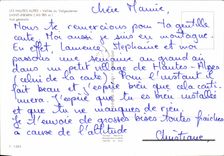 LES HAUTES ALPES - Vallée du Valgaudemar
Chère Mamie,
Nous te remercions pour ta gentille
carte. Moi aussi je suis en montagne.
En effet, Laurence, Stéphanie et moi
passons une semaine au grand air
dans un petit village des Hautes-Alpes
(celui de la carte). Pour l'instant il
fait beau et j'espère bien que cela
continuera. J'espère que tu es bien
installée
et que tu ne manques de rien.
Je t'envoie de grosses bises toutes fraîches
à cause de l'altitude
Christiane